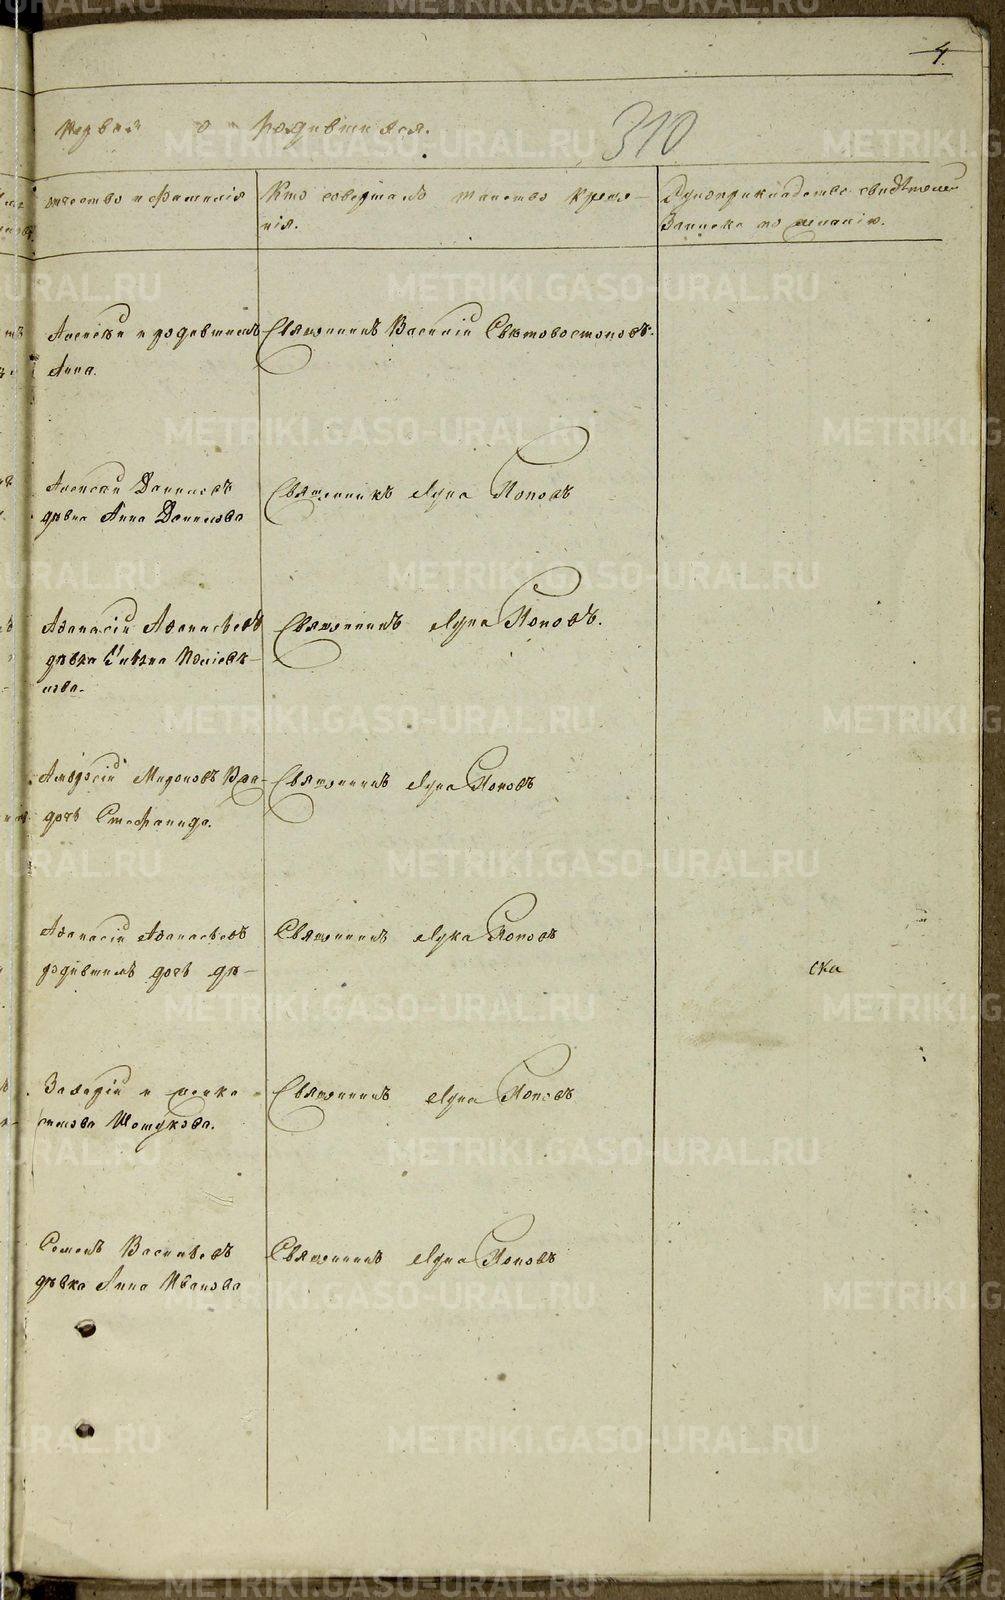 4.
первая о родившихся.
310
отчество и фамилія
Кто совершалъ таинство креще-
нія.
Рукоприкладство свидѣтелей
записки по желанію.
Алексѣй и родившаяся
Анна.
Священникъ Василій Свѣтовостоковъ.
Алексѣй Даниловъ
дѣвка Анна Данилова
Священникъ Лука Поповъ
Аѳанасій Аѳанасьевъ
дѣвка
Священникъ Лука Поповъ.
Мироновъ
дочь Стефанида.
Священникъ Лука Поповъ
Аѳанасій Аѳанасьевъ
дочь дѣ-
Священникъ Лука Поповъ
ска
и
Священникъ Лука Поповъ
Семенъ Васильевъ
дѣвка Анна Иванова
Священникъ Лука Поповъ
METRIKI.GASO-URAL.RU